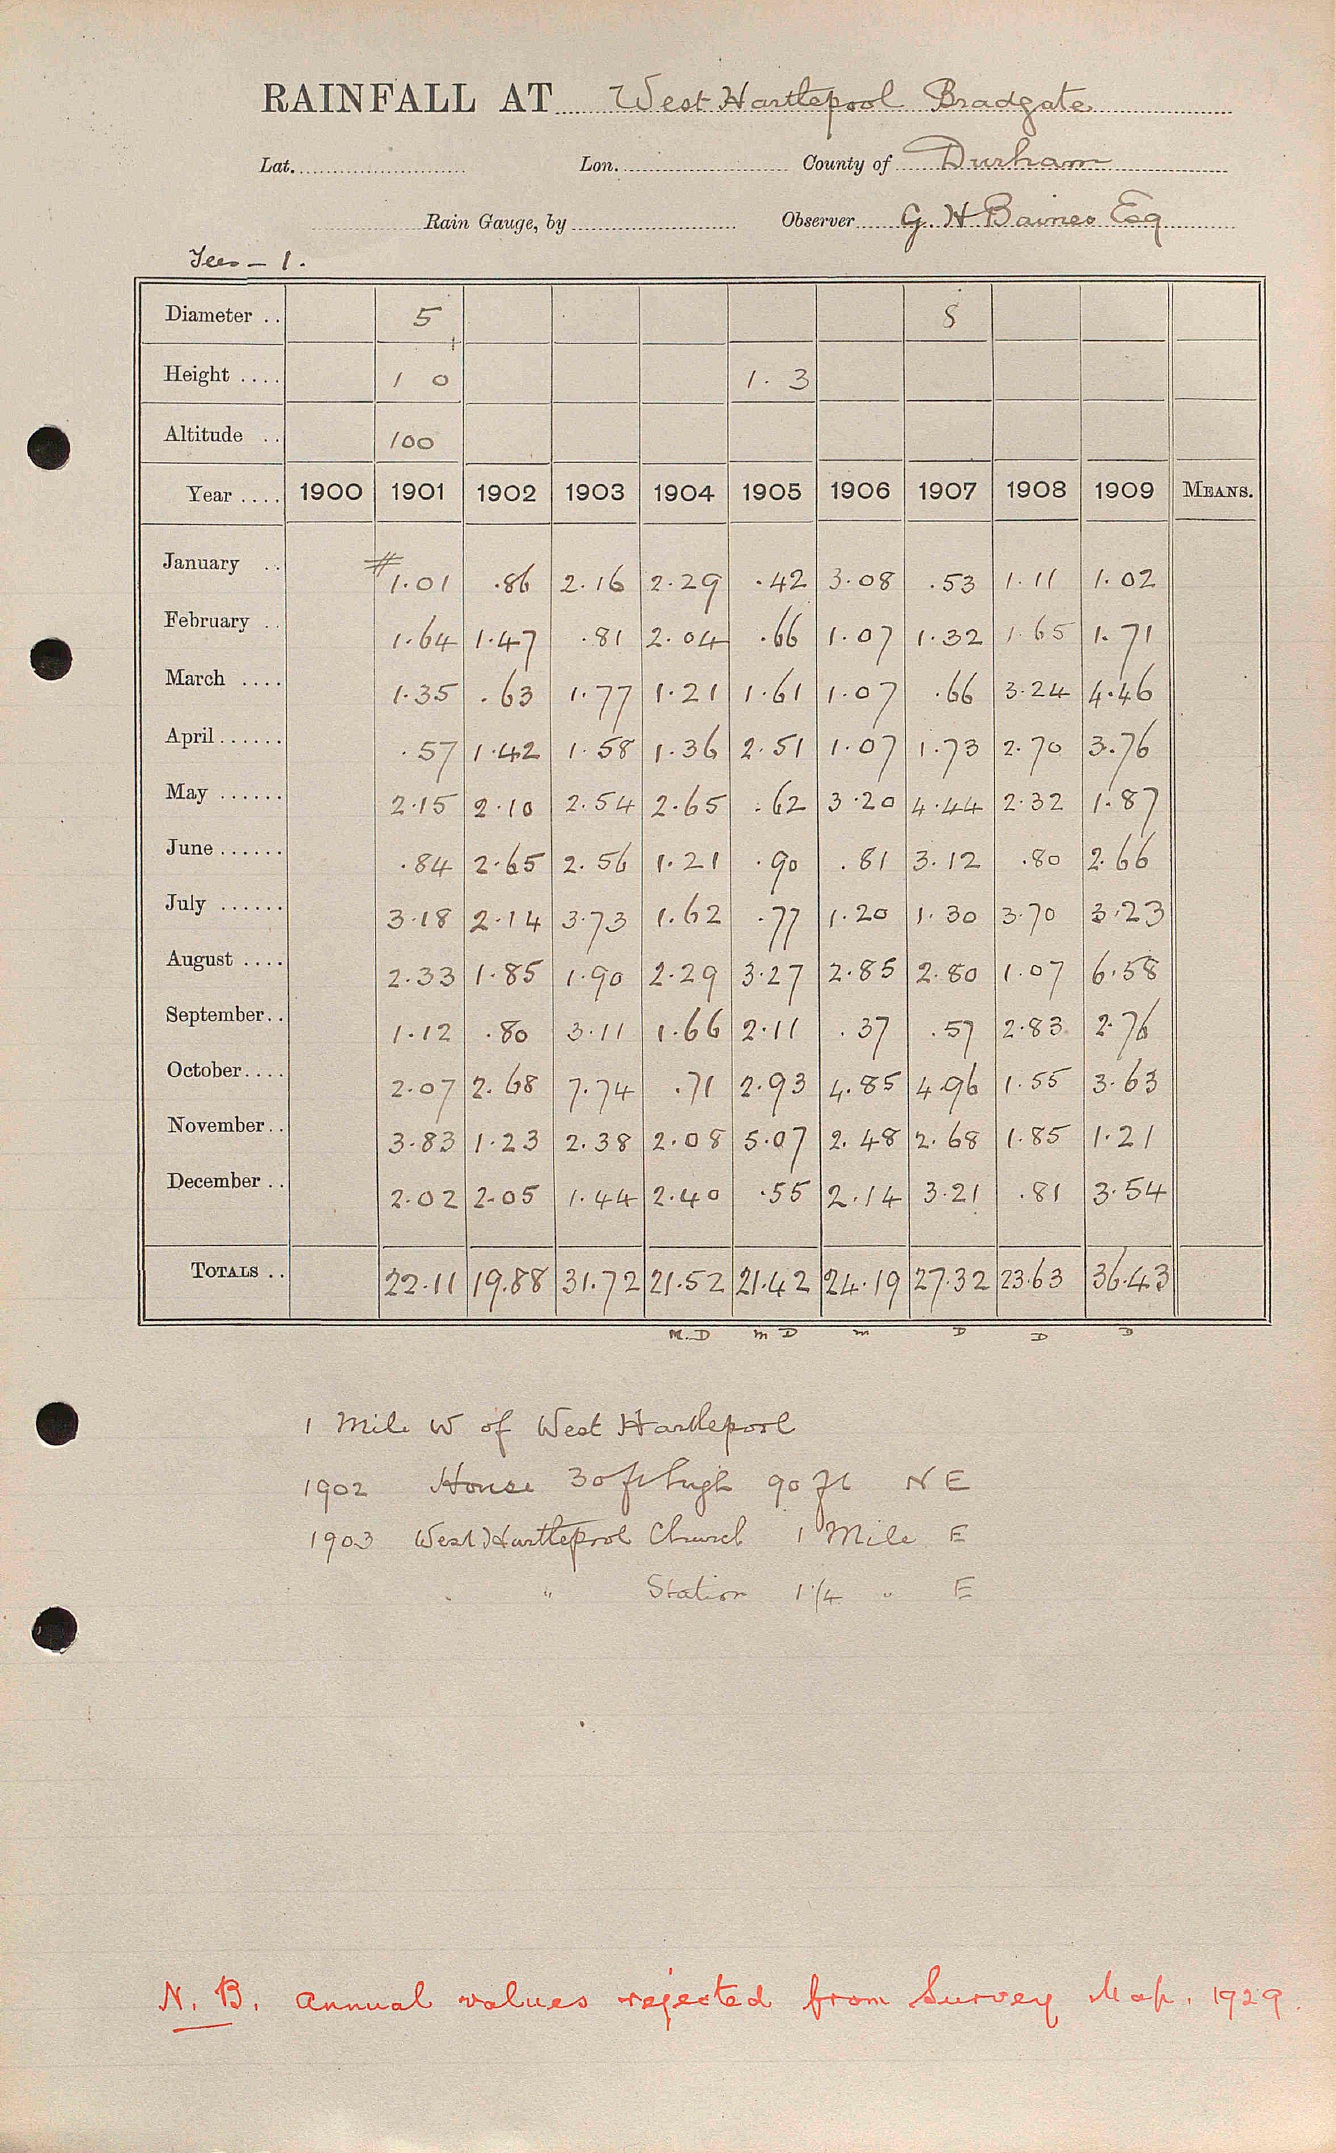 RAINFALL AT West Hartlepool Bradgate
Lat. Lon. County of Durham
Rain Gauge, by Observer G. H. Baines Esq
Tees - 1.
Diameter .. 5
Height .... 1 0 1. 3
Altitude .. 100
Year .... 1900 1901 1902 1903 1904 1905 1906 1907 1908 1909 MEANS.
January .. # 1.01 .86 2.16 2.29 .42 3.08 .53 1.11 1.02
February .. 1.64 1.47 .81 2.04 .66 1.07 1.32 1.65 1.71
March .... 1.35 .63 1.77 1.21 1.61 1.07 .66 3.24 4.46
April...... .57 1.42 1.58 1.36 2.51 1.07 1.73 2.70 3.76
May ...... 2.15 2.10 2.54 2.65 .62 3.20 4.44 2.32 1.87
June...... .84 2.65 2.56 1.21 .90 .81 3.12 .80 2.66
July ...... 3.18 2.14 3.73 1.62 .77 1.20 1.30 3.70 3.23
August .... 2.33 1.85 1.90 2.29 3.27 2.85 2.80 1.07 6.58
September.. 1.12 .80 3.11 1.66 2.11 .37 .57 2.83 2.76
October.... 2.07 2.68 7.74 .71 2.93 4.85 4.96 1.55 3.63
November.. 3.83 1.23 2.38 2.08 5.07 2.48 2.68 1.85 1.21
December .. 2.02 2.05 1.44 2.40 .55 2.14 3.21 .81 3.54
TOTALS .. 22.11 19.88 31.72 21.52 21.42 24.19 27.32 23.63 36.43
M.D m D m D D D
1 Mile W of West Hartlepool
1902 House 30 ft high 90 ft N E
1903 West Hartlepool Church 1 Mile E
" " Station 1 1/4 " E
N. B. Annual values rejected from Survey Map. 1929.